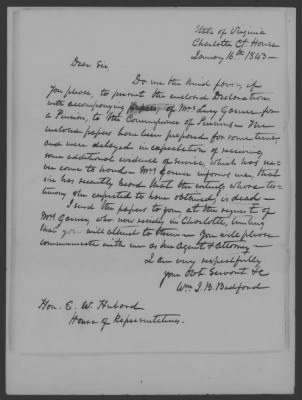 State of Virginia
Charlotte Ct. House
January 16th 1843 —
Dear Sir,
Do me the kind favor, if
you please, to present the enclosed Declaration
with accompanying papers, of Mrs Lucy Garner for
a Pension, to the Commissioner of Pensions — The
enclosed papers have been prepared for some time,
and were delayed in expectation of receiving
some additional evidence of service, which has ne-
ver come to hand — Mrs Garner informs me, that
she has recently heard that the witness whose tes-
timony she expected to have obtained, is dead —
I send the papers to you, at the request of
Mrs Garner, who now resides in Charlotte, trusting
that you will attend to them — You will please
communicate with me as her Agent & Attorney —
I am very respectfully
your Obt. Servant &c
Wm. J. B. Bedford
Hon. E. W. Hubard
House of Representatives.